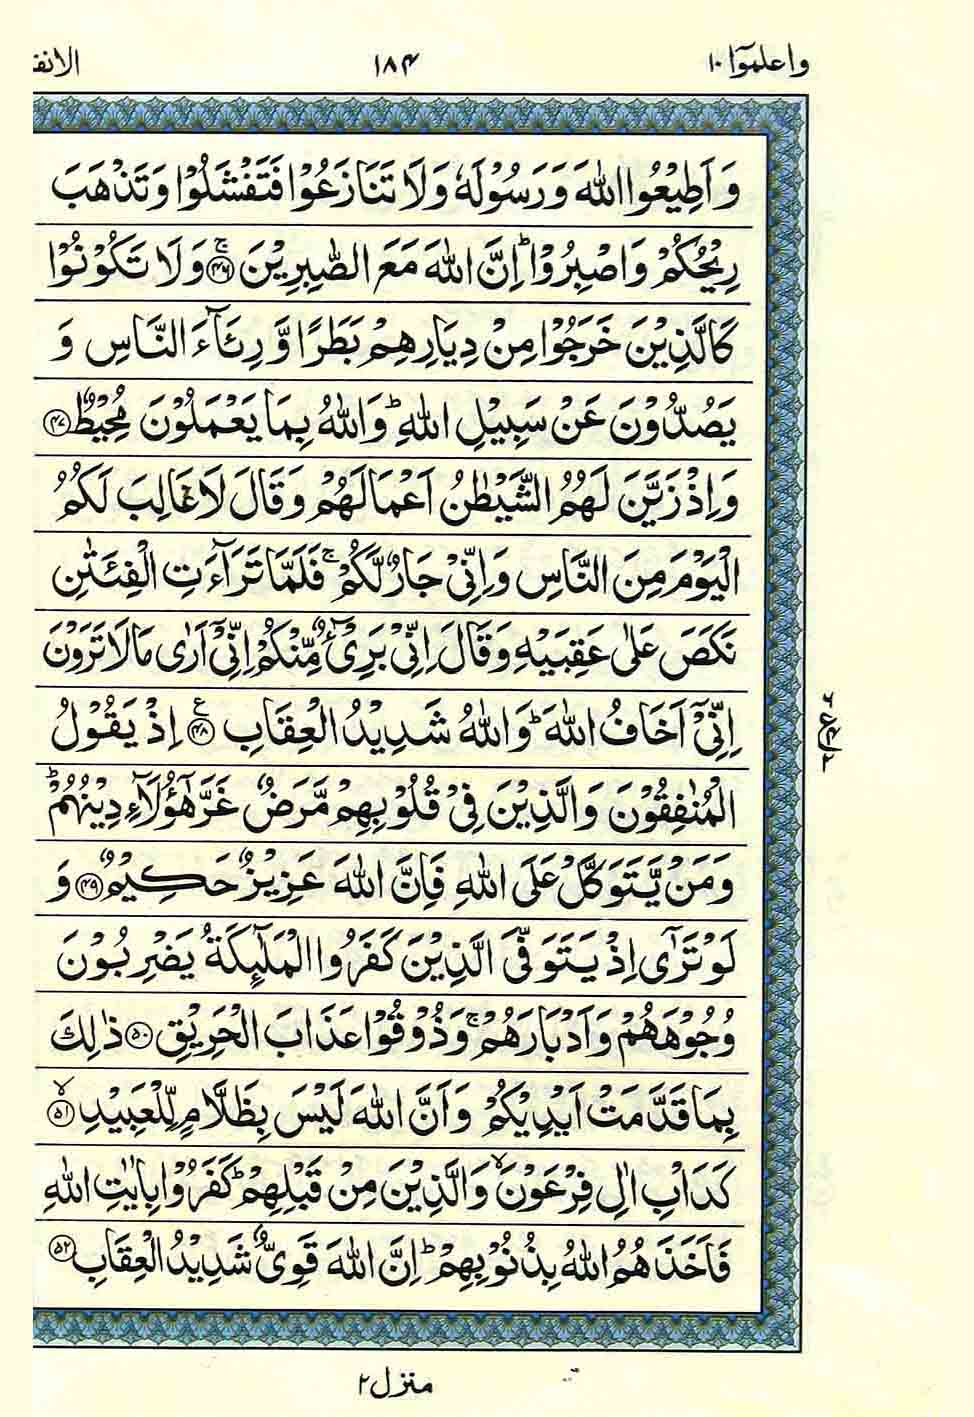 واعلموۤا ١٠ ١٨٤ الانف
وَ اَطِيْعُوا اللّٰهَ وَ رَسُوْلَهٗ وَ لَا تَنَازَعُوْا فَتَفْشَلُوْا وَ تَذْهَبَ
رِيْحُكُمْ وَ اصْبِرُوْا ؕ اِنَّ اللّٰهَ مَعَ الصّٰبِرِيْنَ ۚ‏﴿۴۶﴾ وَ لَا تَكُوْنُوْا
كَالَّذِيْنَ خَرَجُوْا مِنْ دِيَارِهِمْ بَطَرًا وَّ رِئَآءَ النَّاسِ وَ
يَصُدُّوْنَ عَنْ سَبِيْلِ اللّٰهِ ؕ وَ اللّٰهُ بِمَا يَعْمَلُوْنَ مُحِيْطٌ ﴿۴۷﴾
وَ اِذْ زَيَّنَ لَهُمُ الشَّيْطٰنُ اَعْمَالَهُمْ وَ قَالَ لَا غَالِبَ لَكُمُ
الْيَوْمَ مِنَ النَّاسِ وَ اِنِّيْ جَارٌ لَّكُمْ ۚ فَلَمَّا تَرَآءَتِ الْفِئَتٰنِ
نَكَصَ عَلٰى عَقِبَيْهِ وَ قَالَ اِنِّيْ بَرِيْٓءٌ مِّنْكُمْ اِنِّيْۤ اَرٰى مَا لَا تَرَوْنَ
اِنِّيْۤ اَخَافُ اللّٰهَ ؕ وَ اللّٰهُ شَدِيْدُ الْعِقَابِ ﴿۴۸﴾ اِذْ يَقُوْلُ
الْمُنٰفِقُوْنَ وَ الَّذِيْنَ فِيْ قُلُوْبِهِمْ مَّرَضٌ غَرَّ هٰۤؤُلَآءِ دِيْنُهُمْ ؕ
وَ مَنْ يَّتَوَكَّلْ عَلَى اللّٰهِ فَاِنَّ اللّٰهَ عَزِيْزٌ حَكِيْمٌ ﴿۴۹﴾ وَ
لَوْ تَرٰۤى اِذْ يَتَوَفَّى الَّذِيْنَ كَفَرُوا الْمَلٰٓئِكَةُ يَضْرِبُوْنَ
وُجُوْهَهُمْ وَ اَدْبَارَهُمْ ۚ وَ ذُوْقُوْا عَذَابَ الْحَرِيْقِ ﴿۵۰﴾ ذٰلِكَ
بِمَا قَدَّمَتْ اَيْدِيْكُمْ وَ اَنَّ اللّٰهَ لَيْسَ بِظَلَّامٍ لِّلْعَبِيْدِ ۙ﴿۵۱﴾
كَدَاْبِ اٰلِ فِرْعَوْنَ ۙ وَ الَّذِيْنَ مِنْ قَبْلِهِمْ ؕ كَفَرُوْا بِاٰيٰتِ اللّٰهِ
فَاَخَذَهُمُ اللّٰهُ بِذُنُوْبِهِمْ ؕ اِنَّ اللّٰهَ قَوِيٌّ شَدِيْدُ الْعِقَابِ ﴿۵۲﴾
منزل ٢